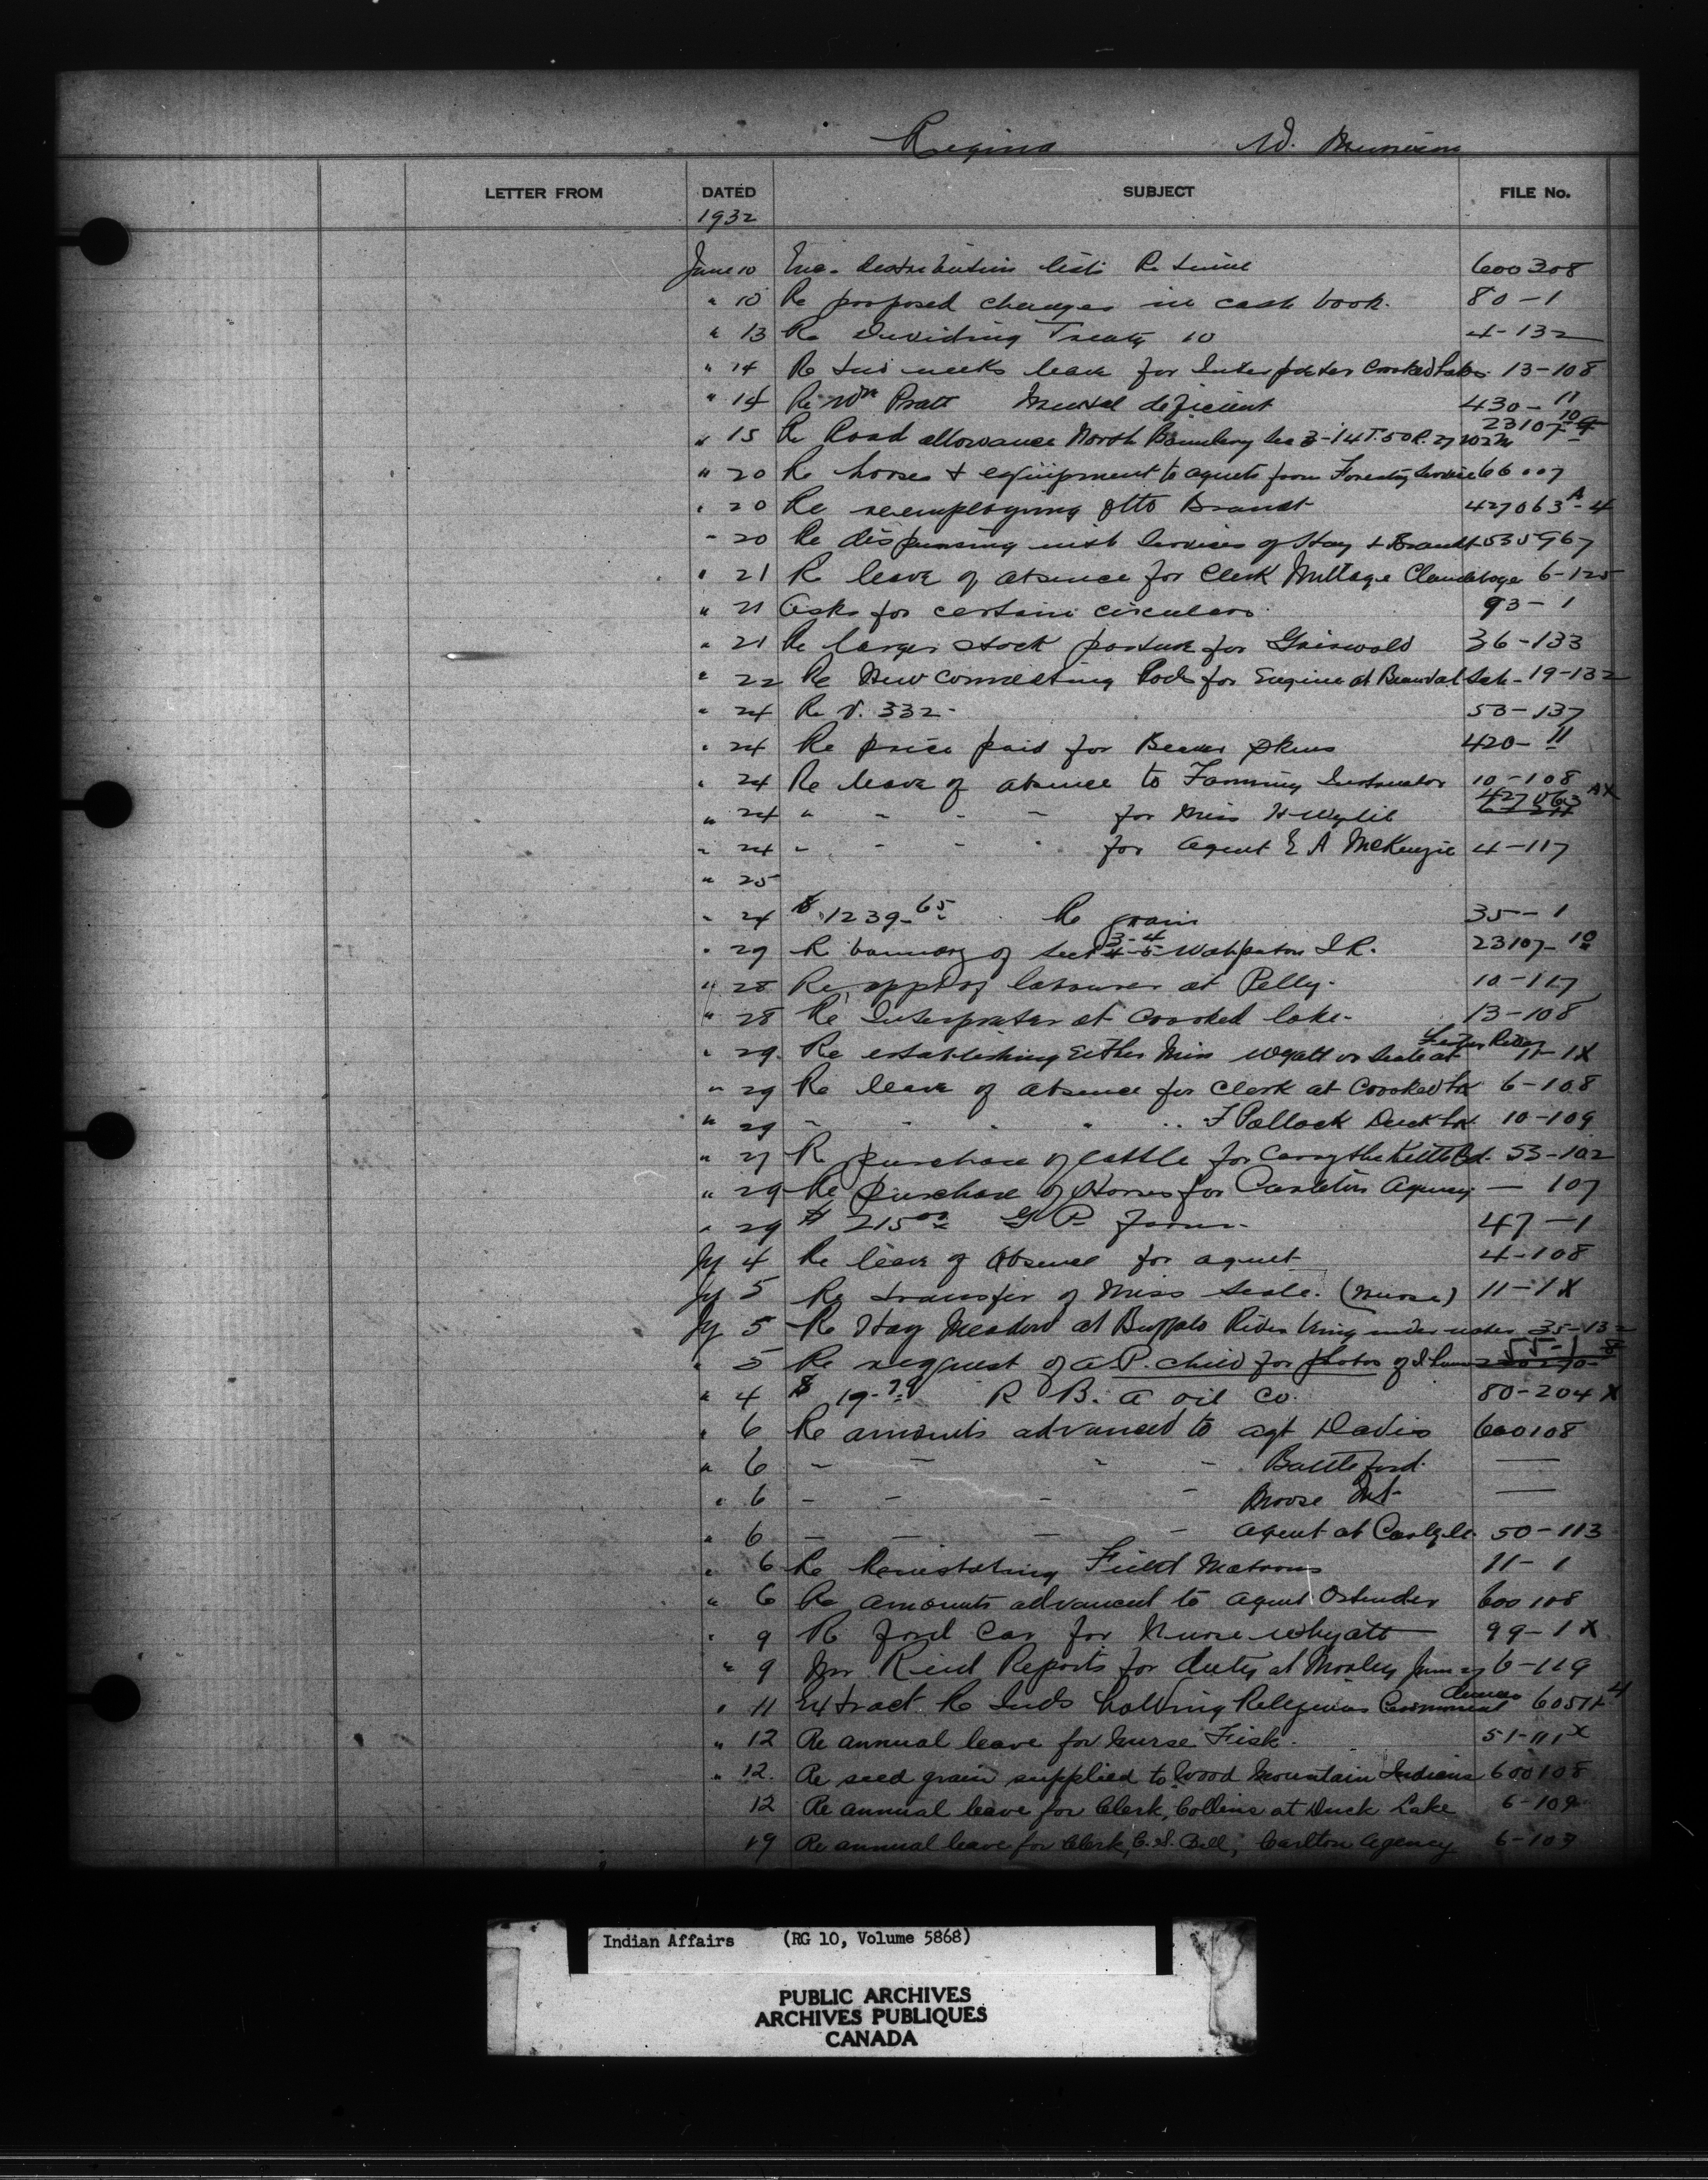 Regina W.
LETTER FROM DATED SUBJECT FILE No.
1932
June 10 Enc. distribution list Re twine 600308
" 10 Re proposed changes in cash book. 80-1
" 13 Re Dividing Treaty 10 4-132
" 14 Re two weeks leave for Interpreter Crooked Lakes. 13-108
" 14 Re Wm Pratt Mental deficient 430-11
" 15 Re Road allowance North Boundary Sec 3-14 T.50 R. 27 W2M 23107-10
" 20 Re horses & equipment to agents from Forestry Service 66007
" 20 Re reemploying Otto Brandt 427063A-4
" 20 Re dispensing with Services of Hay & Brandt 535967
" 21 Re leave of absence for Clerk Millage Clandeboye 6-125
" 21 Asks for certain circulars. 93-1
" 21 Re larger stock pasture for Griswold 36-133
" 22 Re New Connecting Rods for Engine at Beauval Sch- 19-132
" 24 Re V. 332- 53-137
" 24 Re price paid for Beaver Skins 420-11
" 24 Re leave of absence to Farming Instructor 10-108
" 24 " - - - for Miss H Wylie 427063 AX
" 24 " - - - for Agent E A McKenzie 4-117
" 25
" 24 $ 1239.65 Re grain 35-1
" 29 Re boundary of Sect 3-4 4-5 Wahpaton I R. 23107-10
" 28 Re appt of labourer at Pelly. 10-117
" 28 Re Interpreter at Crooked lake- 13-108
" 29 Re establishing Either Miss Wyatt or Seale at River 11-1X
" 29 Re leave of absence for Clerk at Crooked Lk 6-108
" 29 - - - - F Pollock Duck Lk. 10-109
" 27 Re purchase of cattle for Carry the Kettle Bd. 53-102
" 29 Re purchase of Horses for Carleton Agency — 107
" 29 $ 215.00 G P Farm. 47-1
Jy 4 Re leave of absence for agent 4-108
Jy 5 Re transfer of Miss Seale. (nurse) 11-1X
Jy 5 Re Hay Meadow at Buffalo River being under water 35-132
" 5 Re request of A.P. child for photos of 55-1
" 4 $ 19.79 R B. A oil Co. 80-204X
" 6 Re amounts advanced to Agt Davis 600108
" 6 - - - - Battleford. —
" 6 - - - - Moose Mt- —
" 6 - - - - Agent at Carlyle. 50-113
" 6 Re Reinstating Field Matrons 11-1
" 6 Re amounts advanced to Agent Ostrander 600108
" 9 Re ford Car for Nurse Whyatt 99-1X
" 9 Mr Reid Reports for duty at Morley June 27 6-119
" 11 Extract Re Inds holding Religious Ceremonial dances 60511-4
" 12 Re annual leave for Nurse Fisk. 51-111X
" 12. Re seed grain supplied to Wood Mountain Indians 600108
12 Re annual leave for Clerk, Collins at Duck Lake 6-109
19 Re annual leave for Clerk, C. S. Bell, Carlton Agency 6-107
Indian Affairs (RG 10, Volume 5868)
PUBLIC ARCHIVES
ARCHIVES PUBLIQUES
CANADA